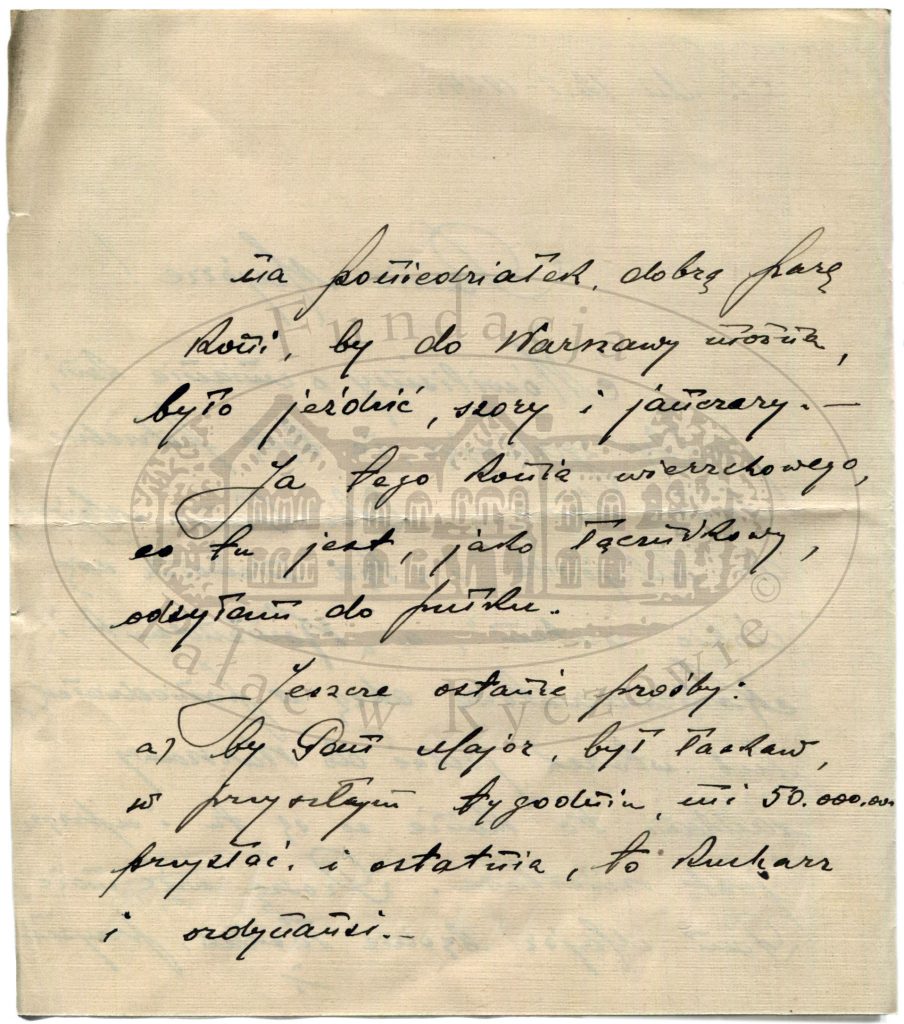 na poniedziałek, dobrą parę
koni, by do Warszawy można,
było jeździć, szory i janczary.—
Ja tego konia wierzchowego,
co tu jest, jako łącznikowy,
odsyłam do pułku.
Jeszcze ostanie prośby:
a) by Pan Major, był łaskaw,
w przyszłym tygodniu, mi 50.000.000
przysłać. i ostatnia, to kucharz
i ordynansi.—
Fundacja
Pałac w Ryczowie ©